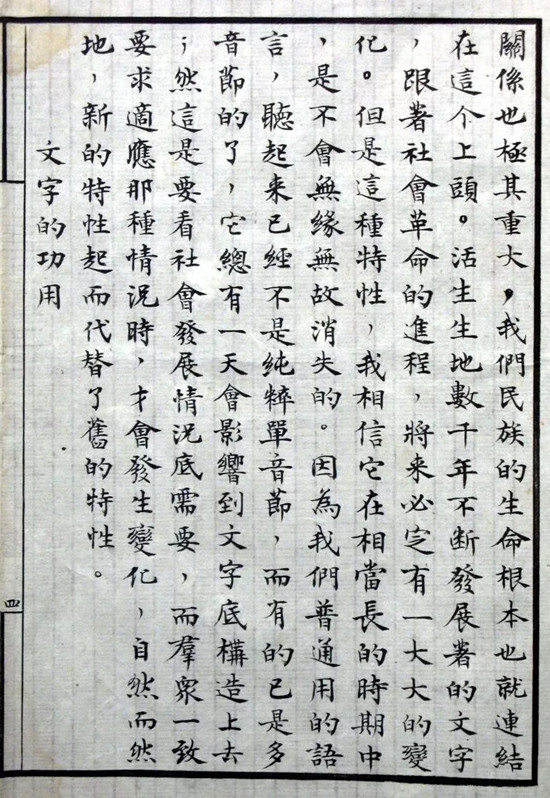 關係也極其重大，我們民族的生命根本也就連結
在這个上頭。活生生地數千年不断發展著的文字
，跟著社會革命的進程，將来必定有一大大的變
化。但是這種特性，我相信它在相當長的時期中
，是不會無緣無故消失的。因為我們普通用的語
言，聽起来已經不是純粹單音節，而有的已是多
音節的了，它總有一天會影響到文字底構造上去
；然這是要看社會發展情况底需要，而羣衆一致
要求適應那種情况時，才會發生變化，自然而然
地，新的特性起而代替了舊的特性。
文字的功用
四